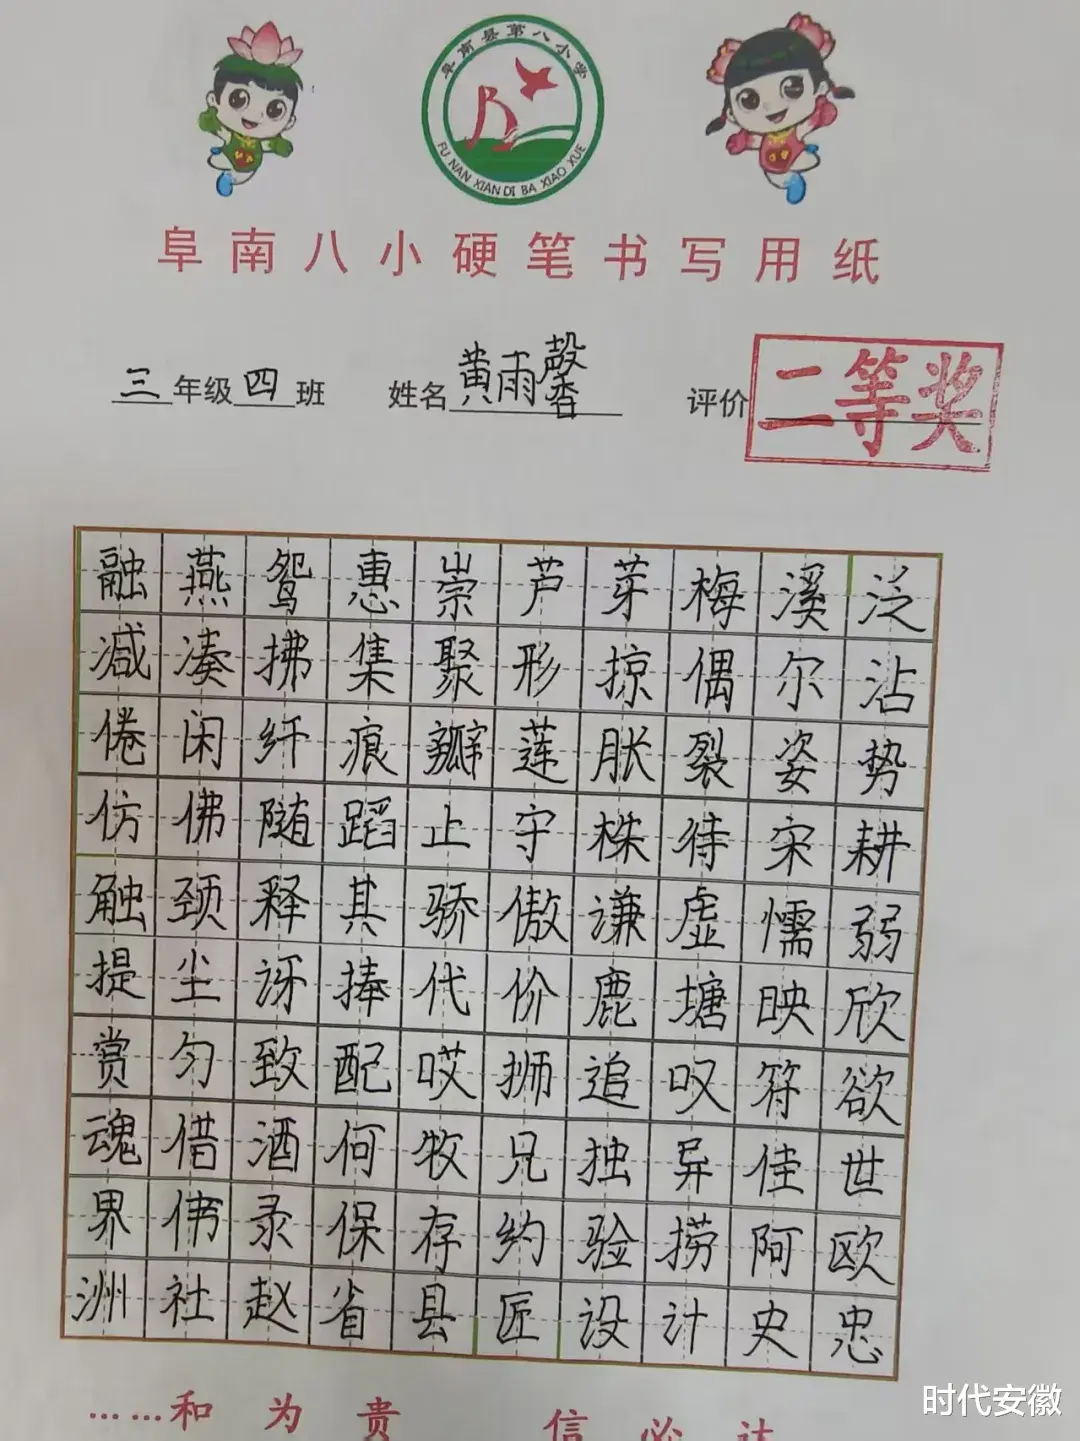 阜南县第八小学
FU NAN XIAN DI BA XIAO XUE
阜南八小硬笔书写用纸
三年级四班 姓名黄雨馨 评价 二等奖
融燕鸳惠崇芦芽梅溪泛
减凑拂集聚形掠偶尔沾
倦闲纤痕瓣莲胀裂姿势
仿佛随蹈止守株待宋耕
触颈释其骄傲谦虚懦弱
提尘讶捧代价鹿塘映欣
赏匀致配哎狮追叹符欲
魂借酒何牧兄独异佳世
界伟录保存约验捞阿欧
洲社赵省县匠设计史忠
……和为贵 信必达
时代安徽